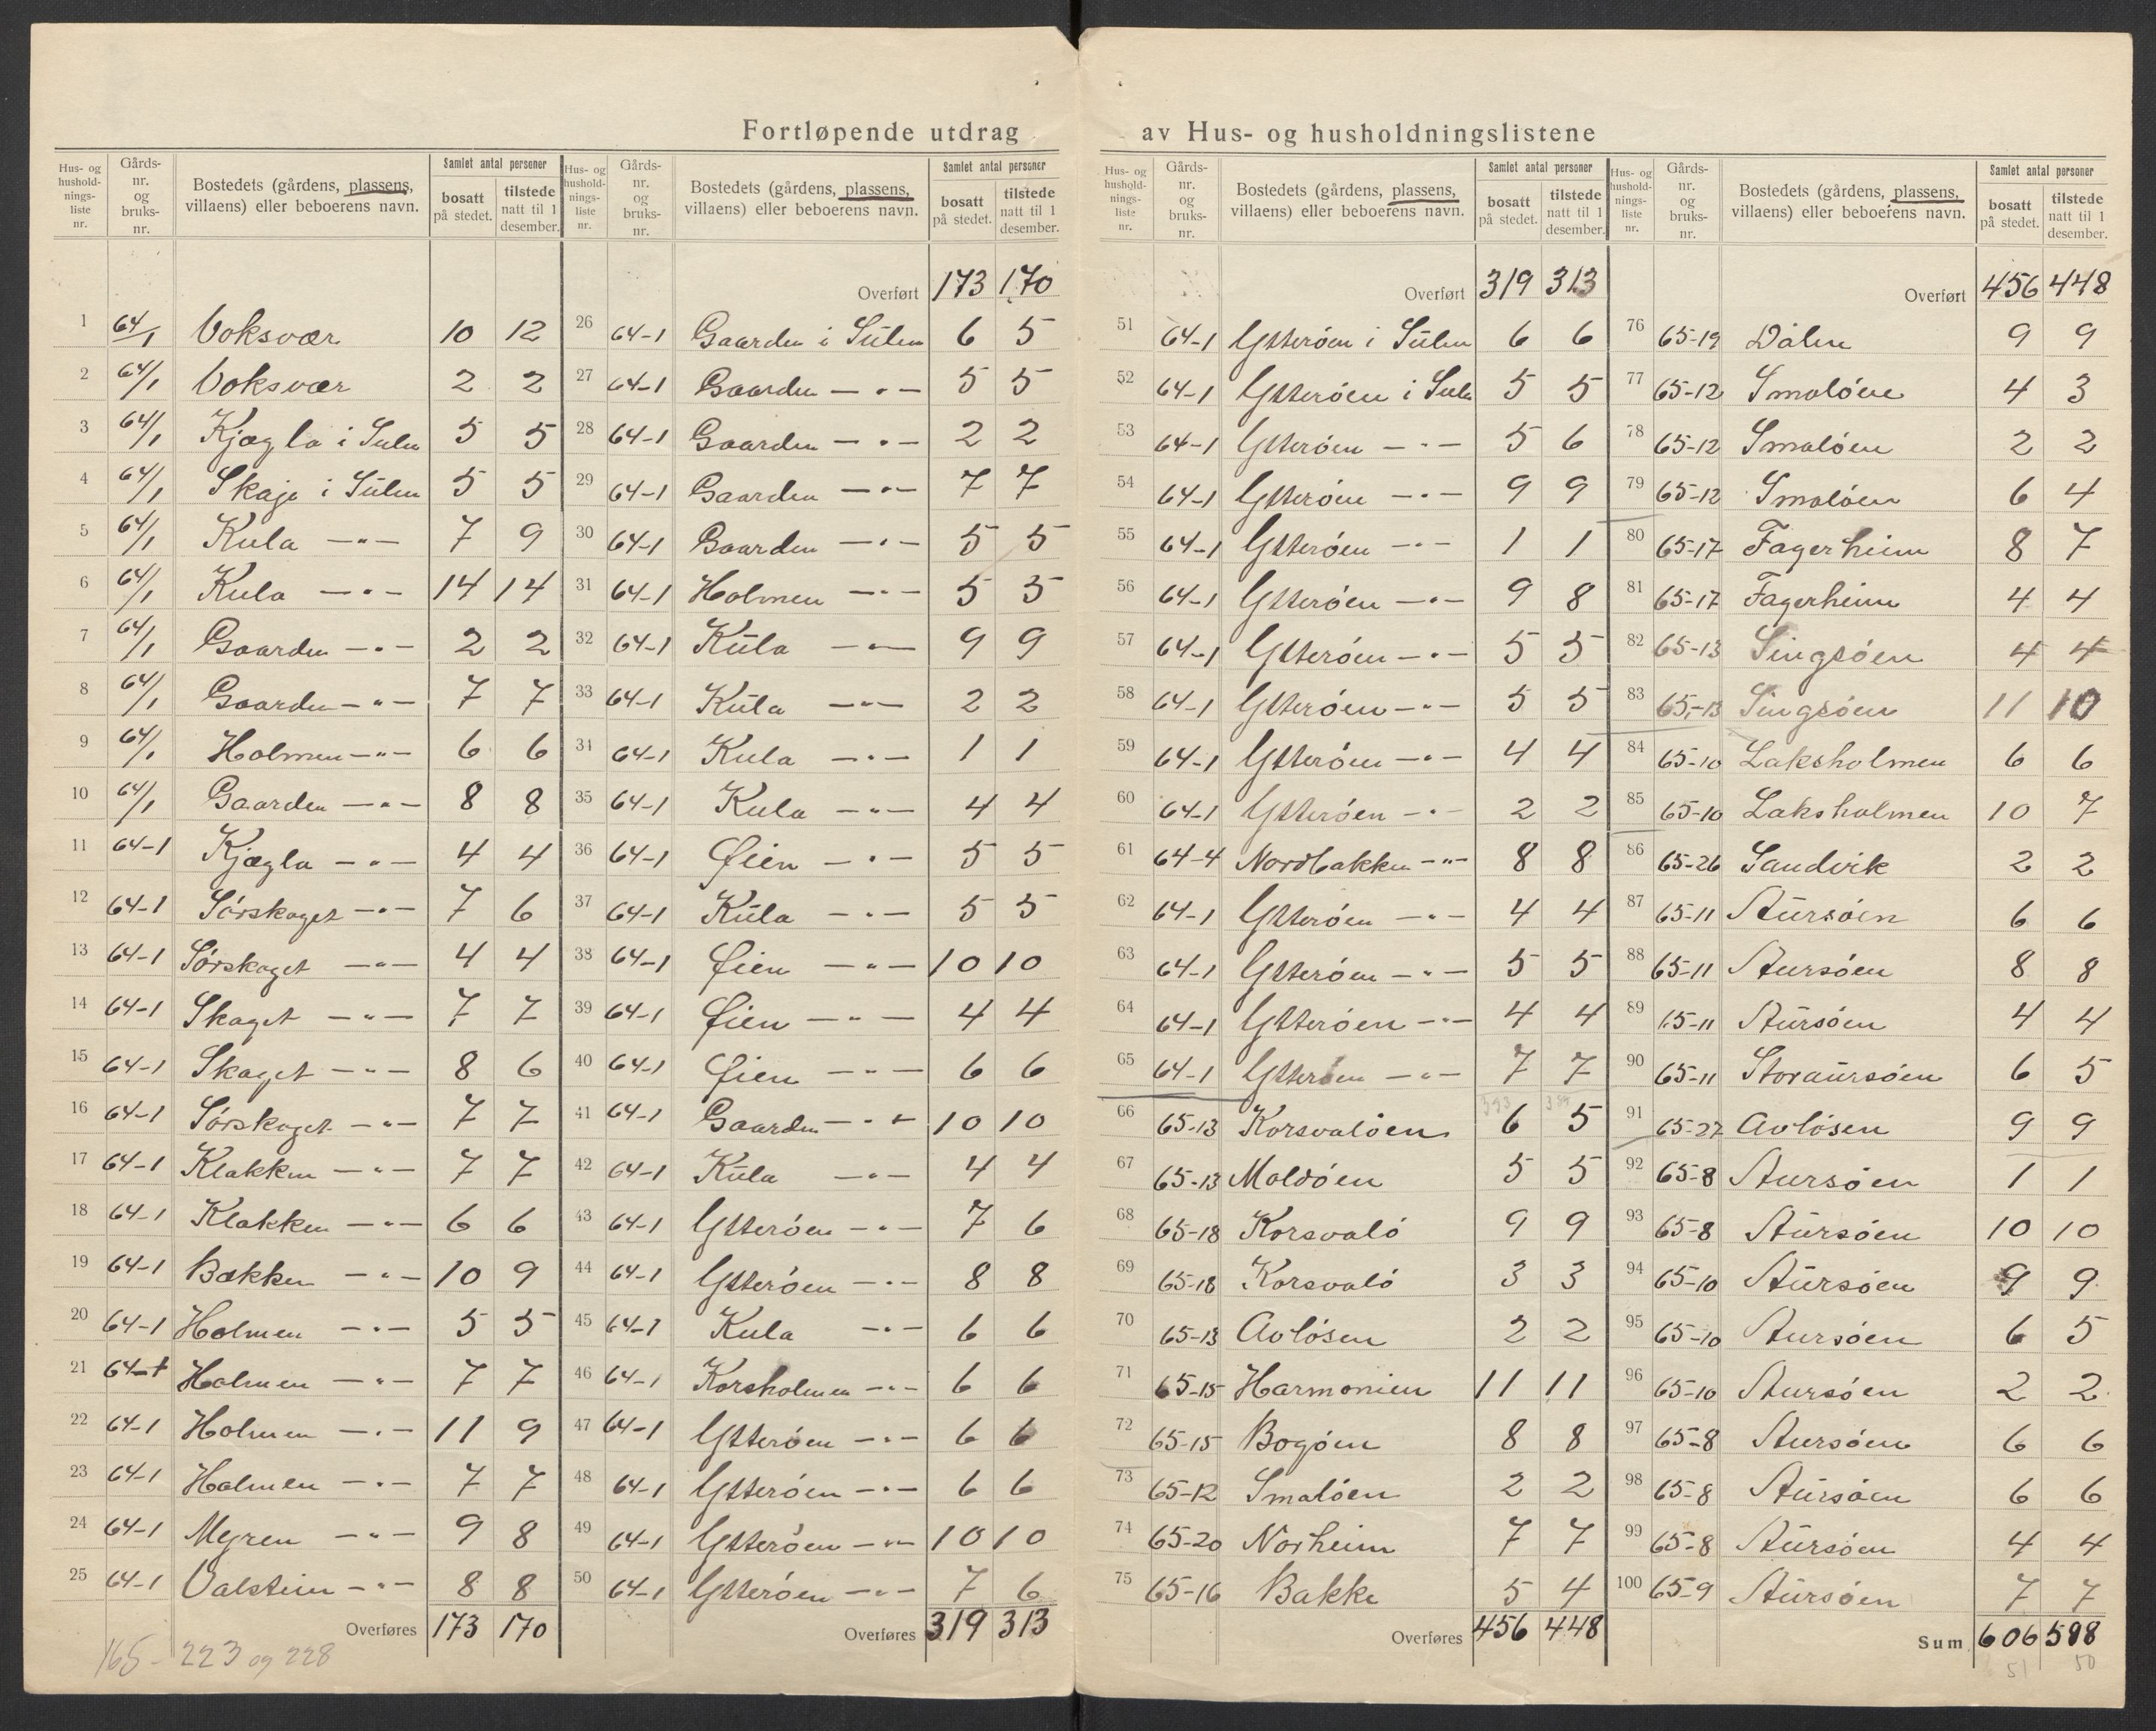 Fortløpende utdrag av Hus- og husholdningslistene
Hus- og husholdningsliste nr. | Gårds-nr. og bruks-nr. | Bostedets (gårdens, plassens, villaens) eller beboerens navn. | Samlet antal personer bosatt på stedet. | tilstede natt til 1 desember.
1 64/1 Voksvær 10 12
2 64/1 Voksvær 2 2
3 64/1 Kjægla i Sulen 5 5
4 64/1 Skaje i Sülen 5 5
5 64/1 Kula —"— 7 9
6 64/1 Kula —"— 14 14
7 64/1 Gaarden —"— 2 2
8 64/1 Gaarden —"— 7 7
9 64/1 Holmen —"— 6 6
10 64/1 Gaarden —"— 8 8
11 64-1 Kjægla —"— 4 4
12 64-1 Sørskaget —"— 7 6
13 64-1 Sørskaget —"— 4 4
14 64-1 Skaget —"— 7 7
15 64-1 Skaget —"— 8 6
16 64-1 Sørskaget —"— 7 7
17 64-1 Klakken —"— 7 7
18 64-1 Klakken —"— 6 6
19 64-1 Bakken —"— 10 9
20 64-1 Holmen —"— 5 5
21 64-1 Holmen —"— 7 7
22 64-1 Holmen —"— 11 9
23 64-1 Holmen —"— 7 7
24 64-1 Myren —"— 9 8
25 64-1 Valstein —"— 8 8
Overføres 173 170
165- 223 og 228
Hus- og husholdningsliste nr. | Gårds-nr. og bruks-nr. | Bostedets (gårdens, plassens, villaens) eller beboerens navn. | Samlet antal personer bosatt på stedet. | tilstede natt til 1 desember.
Overført 173 170
26 64-1 Gaarden i Sülen 6 5
27 64-1 Gaarden —"— 5 5
28 64-1 Gaarden —"— 2 2
29 64-1 Gaarden —"— 7 7
30 64-1 Gaarden —"— 5 5
31 64-1 Holmen —"— 5 5
32 64-1 Küla —"— 9 9
33 64-1 Küla —"— 2 2
34 64-1 Kula —"— 1 1
35 64-1 Kula —"— 4 4
36 64-1 Øien —"— 5 5
37 64-1 Küla —"— 5 5
38 64-1 Øien —"— 10 10
39 64-1 Øien —"— 4 4
40 64-1 Øien —"— 6 6
41 64-1 Gaarden —"— 10 10
42 64-1 Küla —"— 4 4
43 64-1 Ytterøen —"— 7 6
44 64-1 Ytterøen —"— 8 8
45 64-1 Kula —"— 6 6
46 64-1 Korsholmen —"— 6 6
47 64-1 Ytterøen —"— 6 6
48 64-1 Ytterøen —"— 6 6
49 64-1 Ytterøen —"— 10 10
50 64-1 Ytterøen —"— 7 6
Overføres 319 313
Hus- og husholdningsliste nr. | Gårds-nr. og bruks-nr. | Bostedets (gårdens, plassens, villaens) eller beboerens navn. | Samlet antal personer bosatt på stedet. | tilstede natt til 1 desember.
Overført 319 313
51 64-1 Ytterøen i Sülen 6 6
52 64-1 Ytterøen i Sulen 5 5
53 64-1 Ytterøen —"— 5 6
54 64-1 Ytterøen —"— 9 9
55 64-1 Ytterøen —"— 1 1
56 64-1 Ytterøen —"— 9 8
57 64-1 Ytterøen —"— 5 5
58 64-1 Ytterøen —"— 5 5
59 64-1 Ytterøen —"— 4 4
60 64-1 Ytterøen —"— 2 2
61 64-4 Nordbakken —"— 8 8
62 64-1 Ytterøen —"— 4 4
63 64-1 Ytterøen —"— 5 5
64 64-1 Ytterøen —"— 4 4
65 64-1 Ytterøen —"— 7 7
66 65-13 Korsvaløen 6 5
67 65-13 Moldøen 5 5
68 65-18 Korsvalø 9 9
69 65-18 Korsvalø 3 3
70 65-13 Avløsen 2 2
71 65-15 Harmonien 11 11
72 65-15 Bogøen 8 8
73 65-12 Smaløen 2 2
74 65-20 Norheim 7 7
75 65-16 Bakke 5 4
Overføres 456 448
Hus- og husholdningsliste nr. | Gårds-nr. og bruks-nr. | Bostedets (gårdens, plassens, villaens) eller beboerens navn. | Samlet antal personer bosatt på stedet. | tilstede natt til 1 desember.
Overført 456 448
76 65-19 Dalen 9 9
77 65-12 Smaløen 4 3
78 65-12 Smaløen 2 2
79 65-12 Smaløen 6 4
80 65-17 Fagerheim 8 7
81 65-17 Fagerheim 4 4
82 65-13 Singsøen 4 4
83 65-13 Singsøen 11 10
84 65-10 Laksholmen 6 6
85 65-10 Laksholmen 10 7
86 65-26 Sandvik 2 2
87 65-11 Aursøen 6 6
88 65-11 Aursøen 8 8
89 65-11 Aursøen 4 4
90 65-11 Storaursøen 6 5
91 65-27 Avløsen 9 9
92 65-8 Aursøen 1 1
93 65-8 Aursøen 10 10
94 65-10 Aursøen 9 9
95 65-10 Aursøen 6 5
96 65-10 Aursøen 2 2
97 65-8 Aursøen 6 6
98 65-8 Aursøen 6 6
99 65-8 Aursøen 4 4
100 65-9 Aursøen 7 7
Sum 606 598
51 50